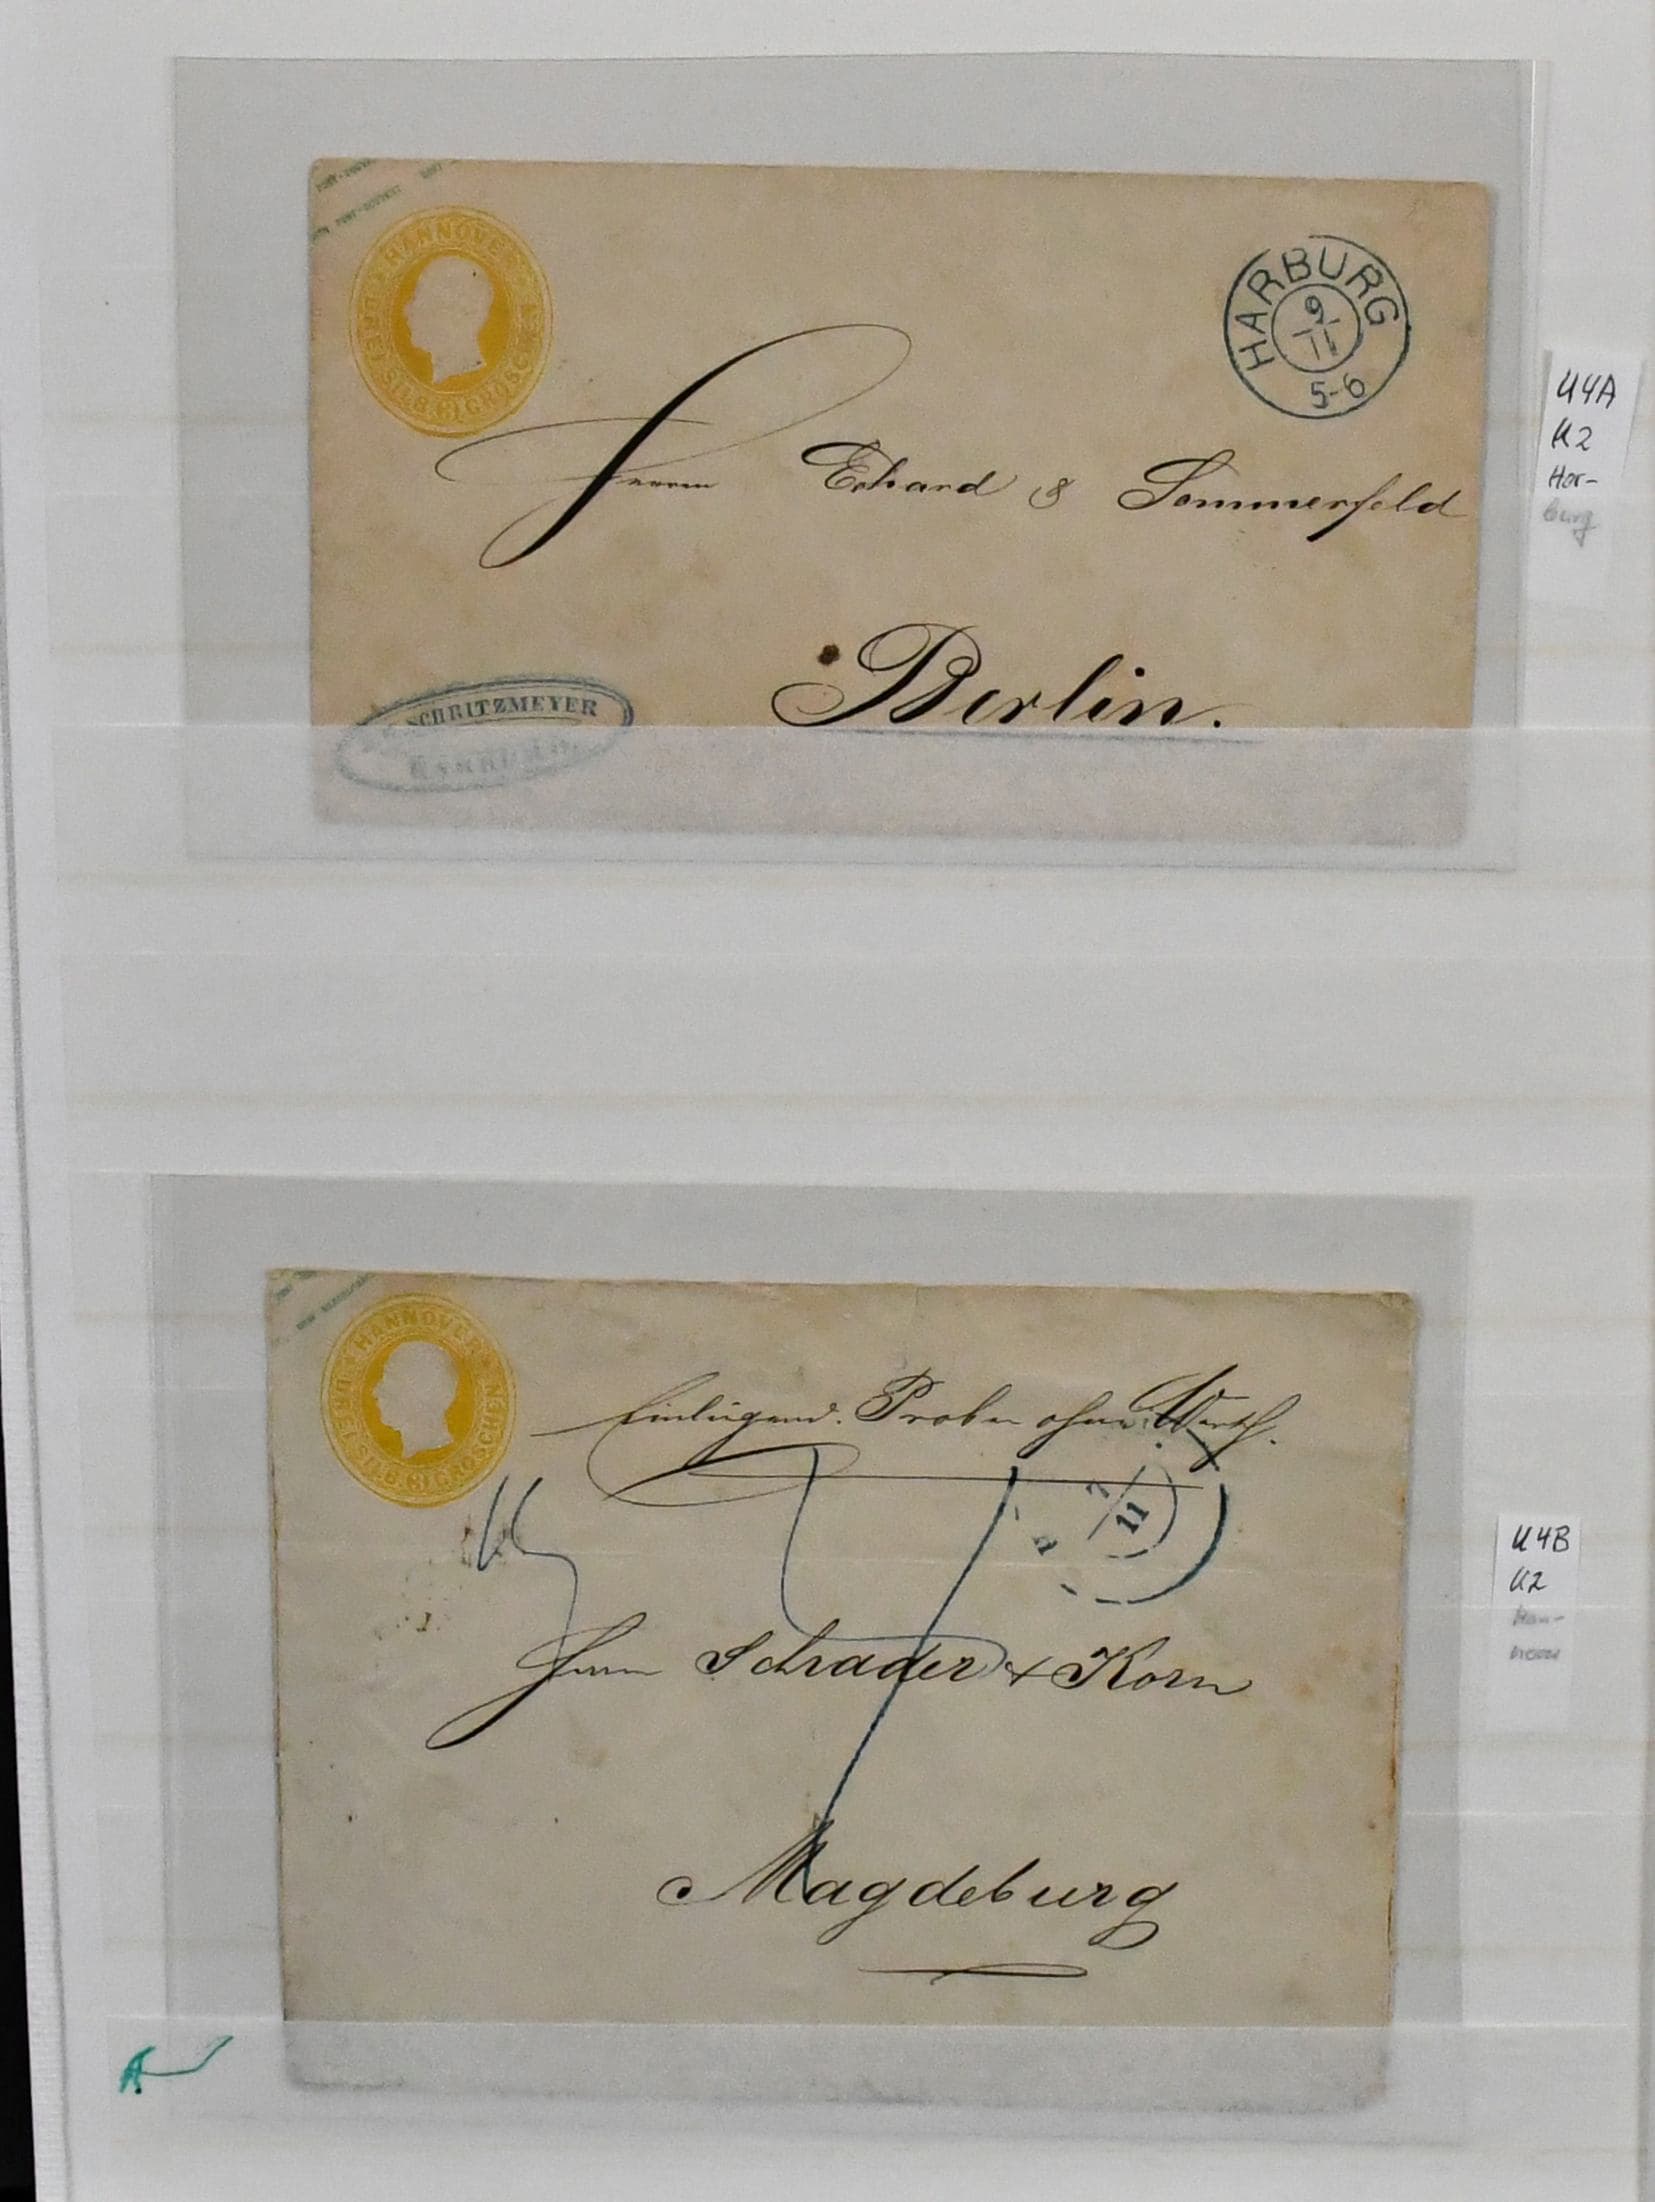 HANNOVER
DREI SILB. GROSCHEN
HARBURG
9/11
5-6
Herren Erhard & Sommerfeld
Berlin.
SCHRITZMEYER
HARBURG
U4A
K2
Har-
burg
HANNOVER
DREI SILB. GROSCHEN
Einliegend. Proben ohne Werth.
7/11
Herrn Schrader & Korn
Magdeburg
U4B
K2
Han-
nover